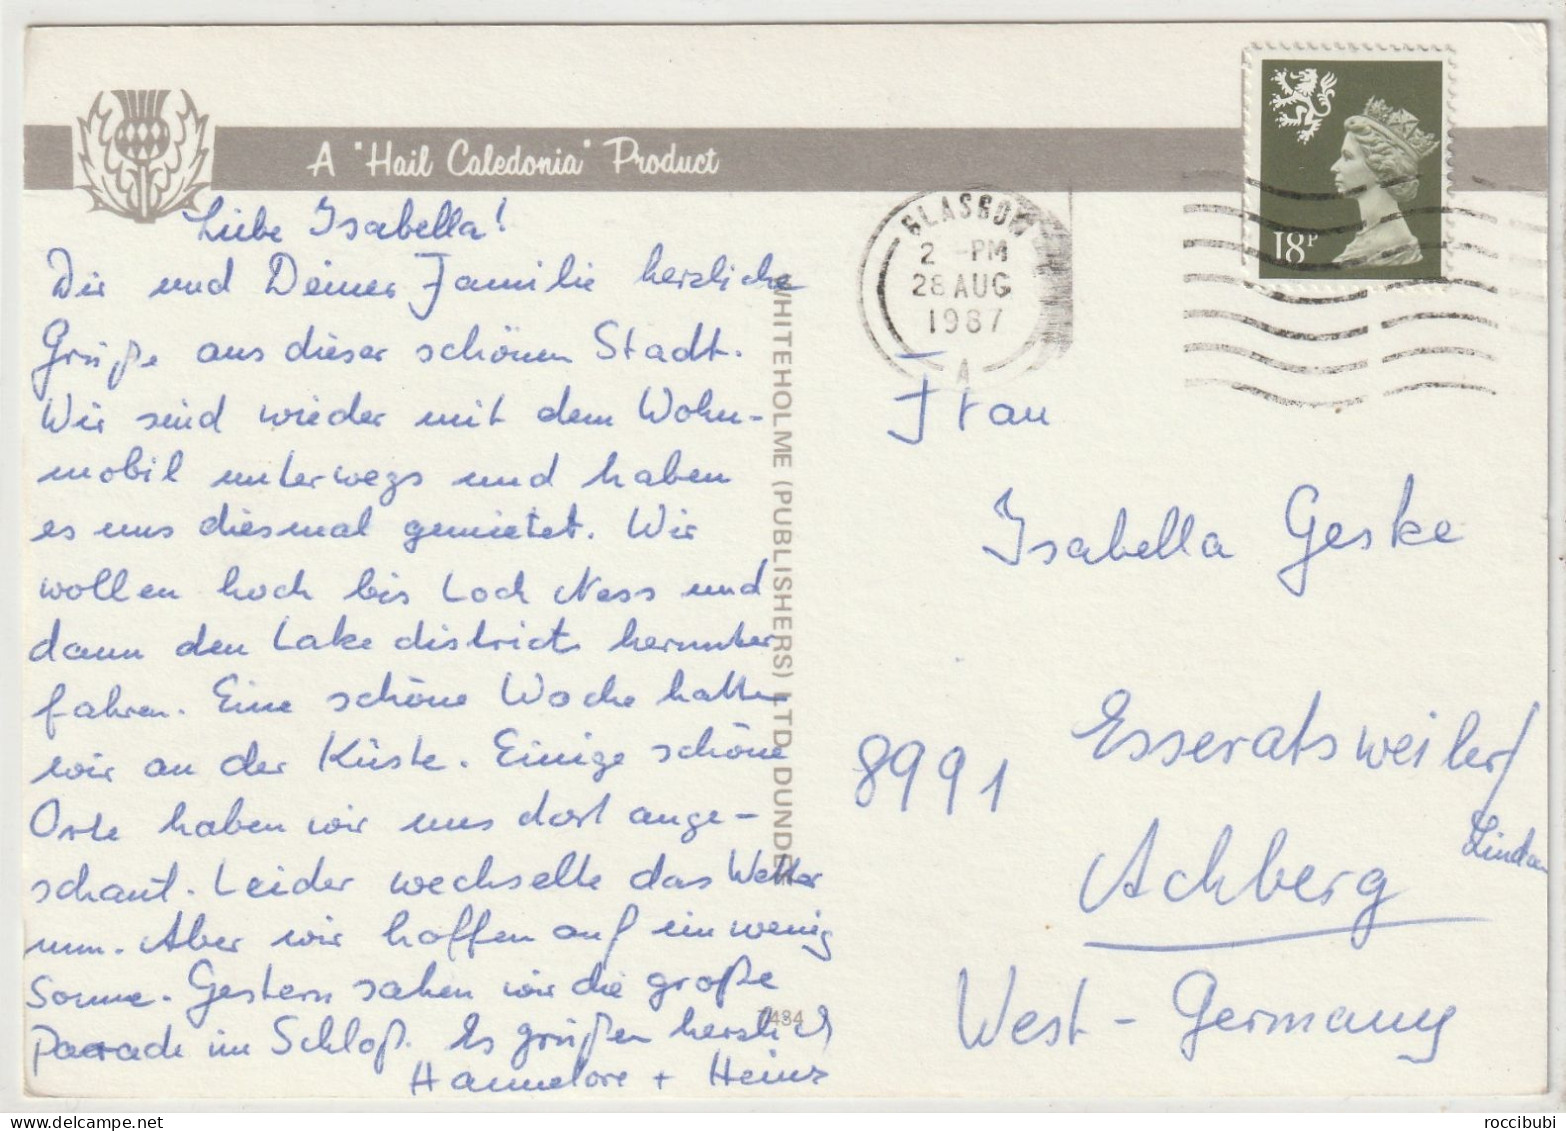 A "Hail Caledonia" Product
Liebe Isabella!
Dir und Deiner Familie herzliche
Grüße aus dieser schönen Stadt.
Wir sind wieder mit dem Wohn-
mobil unterwegs und haben
es uns diesmal gemietet. Wir
wollen hoch bis Loch Ness und
dann den Lake district herunter
fahren. Eine schöne Woche hatten
wir an der Küste. Einige schöne
Orte haben wir uns dort ange-
schaut. Leider wechselte das Wetter
nun. Aber wir hoffen auf ein wenig
Sonne. Gestern sahen wir die große
Parade im Schloß. Es grüßen herzlich
Hannelore + Heinz
WHITEHOLME (PUBLISHERS) LTD DUNDEE
7484
GLASGOW
2 -PM
28 AUG
1987
A
18P
Frau
Isabella Geske
Esseratsweiler/
Lindau
8991 Achberg
West-Germany
roccibubi